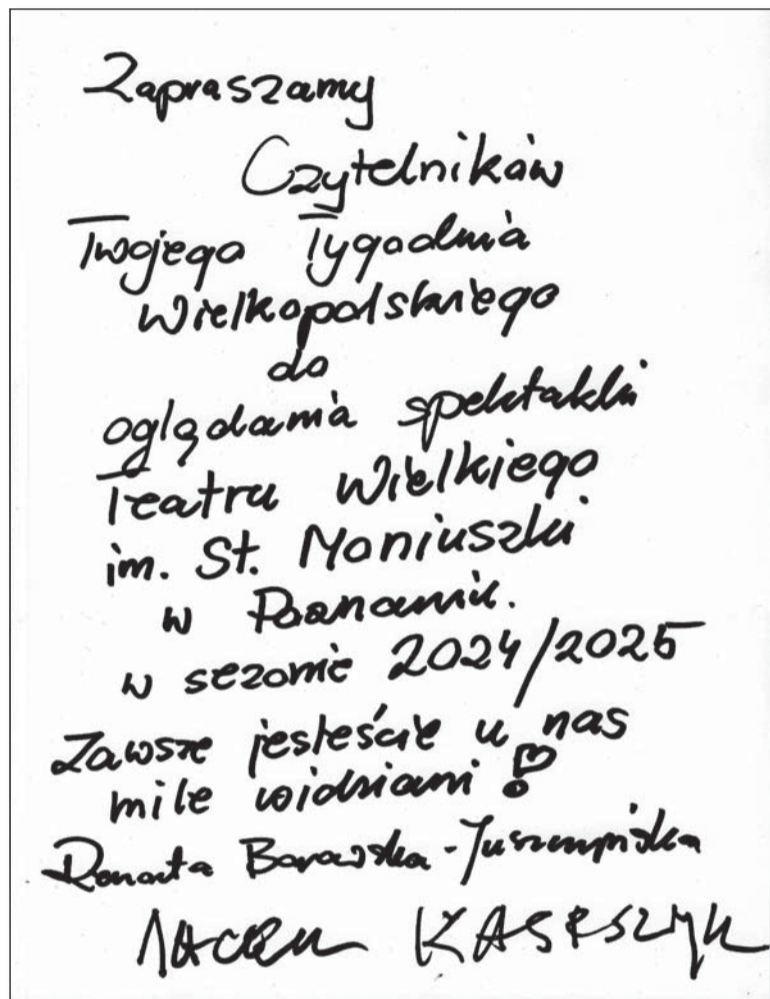 Zapraszamy
Czytelników
Twojego Tygodnia
Wielkopolskiego
do
oglądania spektakli
Teatru Wielkiego
im. St. Moniuszki
w Poznaniu.
w sezonie 2024/2025
Zawsze jesteście u nas
mile widziani!
Renata Borowska-Juszczyńska
Jacek Kaspszyk